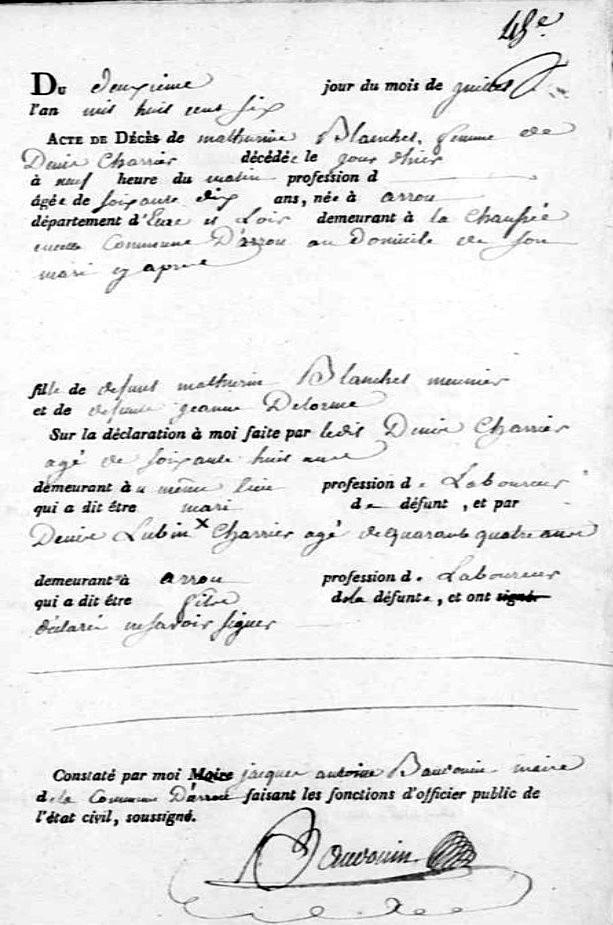 48e.
Du deuxième jour du mois de juillet
l'an mil huit cent six
Acte de Décès de mathurine Blanchet, femme de
Denis Charrier décédée le jour d'hier
à neuf heure du matin profession d
âgée de soixante dix ans, née à arrou
département d'Eure et Loir demeurant à la Chaussée
commune D'arrou au Domicile de son
mari cy après
fille de defunt mathurin Blanchet meunier
et de defunte jeanne Delorme
Sur la déclaration à moi faite par ledit Denis Charrier
agé de soixante huit ans
demeurant au même lieu profession de Laboureur
qui a dit être mari de défunt, et par
Denis Lubin x Charrier agé de quarante quatre ans
demeurant à arrou profession de Laboureur
qui a dit être fils de la défunte, et ont signé
déclaré ne savoir signer
Constaté par moi Maire jacques antoine Bauvouin maire
de la Commune D'arrou faisant les fonctions d'officier public de
l'état civil, soussigné.
Bauvouin